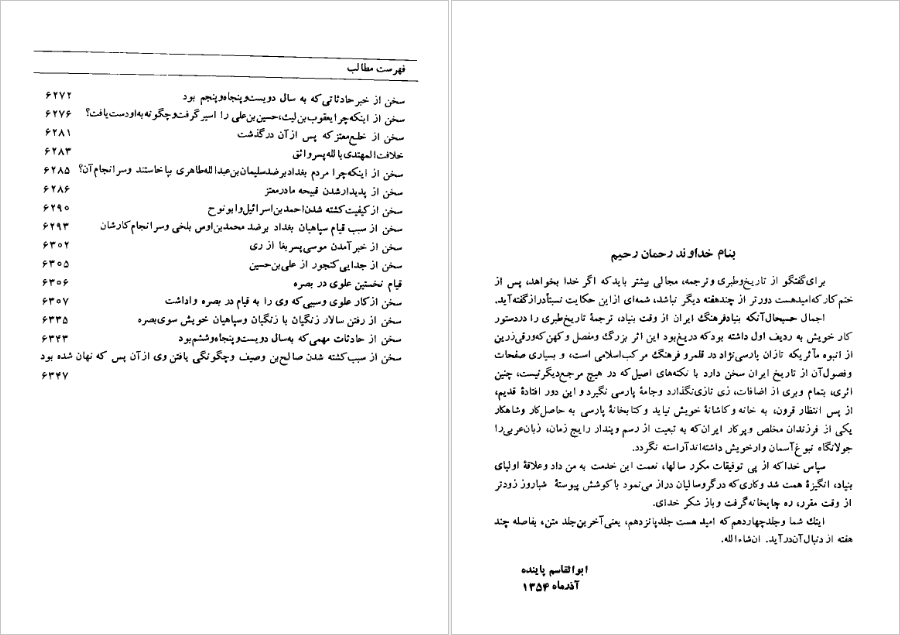 بنام خداوند رحمان رحیم
برای گفتگو از تاریخ طبری و ترجمه، مجالی بیشتر باید که اگر خدا بخواهد، پس از
ختم کار که امید هست دورتر از چند هفته دیگر نباشد، شمه‌ای از این حکایت نسبتاً دراز گفته آید.
اجمال حسبحال آنکه بنیاد فرهنگ ایران از وقت بنیاد، ترجمهٔ تاریخ طبری را در دستور
کار خویش به ردیف اول داشته بود که دریغ بود این اثر بزرگ و مفصل و کهن که ورقی زرین
از انبوه مآثری که تازان پارسی نژاد در قلمرو فرهنگ مرکب اسلامی است، و بسیاری صفحات
و فصول آن از تاریخ ایران سخن دارد با نکته‌های اصیل که در هیچ مرجع دیگر نیست، چنین
اثری، بتمام و بری از اضافات، زی تازی نگذارد و جامهٔ پارسی نگیرد و این دور افتادهٔ قدیم،
از پس انتظار قرون، به خانه و کاشانهٔ خویش نیاید و کتابخانهٔ پارسی به حاصل کار و شاهکار
یکی از فرزندان مخلص و پرکار ایران که به تبعیت از رسم و پندار رایج زمان، زبان عربی را
جولانگاه نبوغ آسمان وار خویش داشته‌اند آراسته نگردد.
سپاس خدا که از پی توفیقات مکرر سالها، نعمت این خدمت به من داد و علاقهٔ اولیای
بنیاد، انگیزهٔ همت شد و کاری که در گرو سالیان دراز می‌نمود با کوشش پیوستهٔ شباروز زودتر
از وقت مقرر، ره چاپخانه گرفت و باز شکر خدای.
اینک شما و جلد چهاردهم که امید هست جلد پانزدهم، یعنی آخرین جلد متن، بفاصله چند
هفته از دنبال آن درآید. ان‌شاءالله.
ابوالقاسم پاینده
آذرماه ۱۳۵۴
فهرست مطالب
سخن از خبر حادثاتی که به سال دویست و پنجاه و پنجم بود ۶۲۷۲
سخن از اینکه چرا یعقوب بن لیث، حسین بن علی را اسیر گرفت و چگونه به او دست یافت؟ ۶۲۷۶
سخن از خلع معتز که پس از آن درگذشت ۶۲۸۱
خلافت المهتدی بالله پسر واثق ۶۲۸۳
سخن از اینکه چرا مردم بغداد بر ضد سلیمان بن عبدالله طاهری بپا خاستند و سرانجام آن؟ ۶۲۸۵
سخن از پدیدار شدن قبیحه مادر معتز ۶۲۸۶
سخن از کیفیت کشته شدن احمد بن اسرائیل و ابو نوح ۶۲۹۰
سخن از سبب قیام سپاهیان بغداد بر ضد محمد بن اوس بلخی و سرانجام کارشان ۶۲۹۳
سخن از خبر آمدن موسی پسر بغا از ری ۶۳۰۲
سخن از جدایی کنجور از علی بن حسین ۶۳۰۵
قیام نخستین علوی در بصره ۶۳۰۶
سخن از کار علوی و سببی که وی را به قیام در بصره واداشت ۶۳۰۷
سخن از رفتن سالار زنگیان با زنگیان و سپاهیان خویش سوی بصره ۶۳۳۵
سخن از حادثات مهمی که به سال دویست و پنجاه و ششم بود ۶۳۴۳
سخن از سبب کشته شدن صالح بن وصیف و چگونگی یافتن وی از آن پس که نهان شده بود
۶۳۴۷